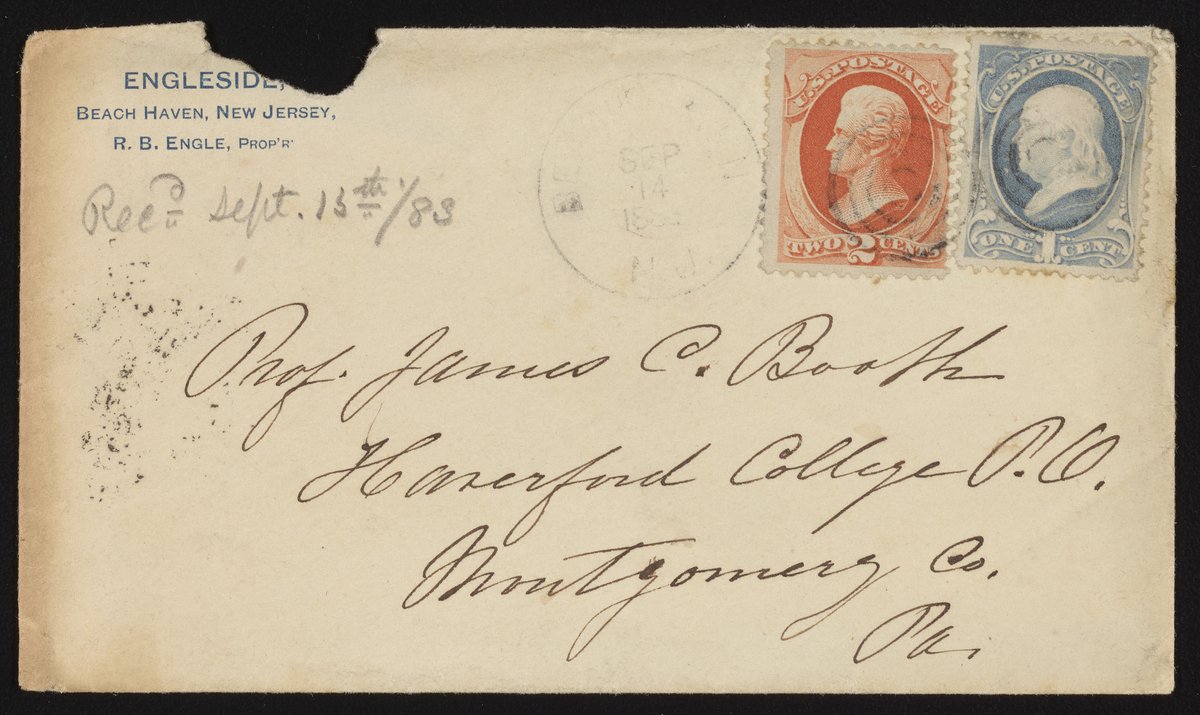 ENGLESIDE,
BEACH HAVEN, NEW JERSEY,
R. B. ENGLE, PROP'R
Rec'd Sept. 15th/83
SEP
14
N.J.
U.S. POSTAGE
TWO 2 CENTS
U.S. POSTAGE
ONE 1 CENT
Prof. James C. Booth
Haverford College P.O.
Montgomery Co.
Pa.